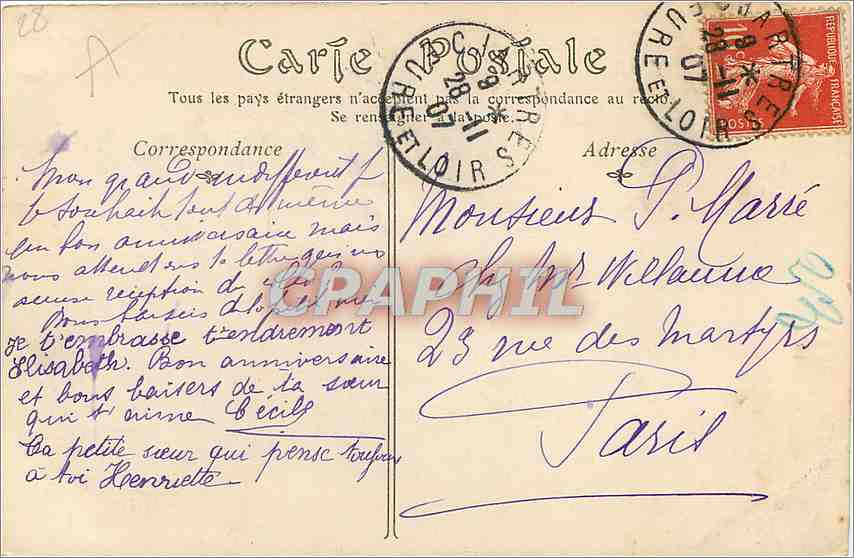 28
A
Carte Postale
Tous les pays étrangers n'acceptent pas la correspondance au recto.
Se renseigner à la poste.
Correspondance
Mon grand indifferent
te souhait tout de même
un bon anniversaire mais
nous attend la lettre
reception de
Bons baisers de
Je t'embrasse tendrement
Elisabeth. Bon anniversaire
et bons baisers de ta sœur
qui t'aime Cécile
Ta petite sœur qui pense toujours
à toi Henriette
CHARTRES
9
28-11
07
EURE ET LOIR
CHARTRES
9
28-11
07
EURE ET LOIR
REPUBLIQUE FRANÇAISE
10
POSTES
Adresse
Monsieur P. Marré
chez Mr
23 rue des Martyrs
Paris
CPAPHIL